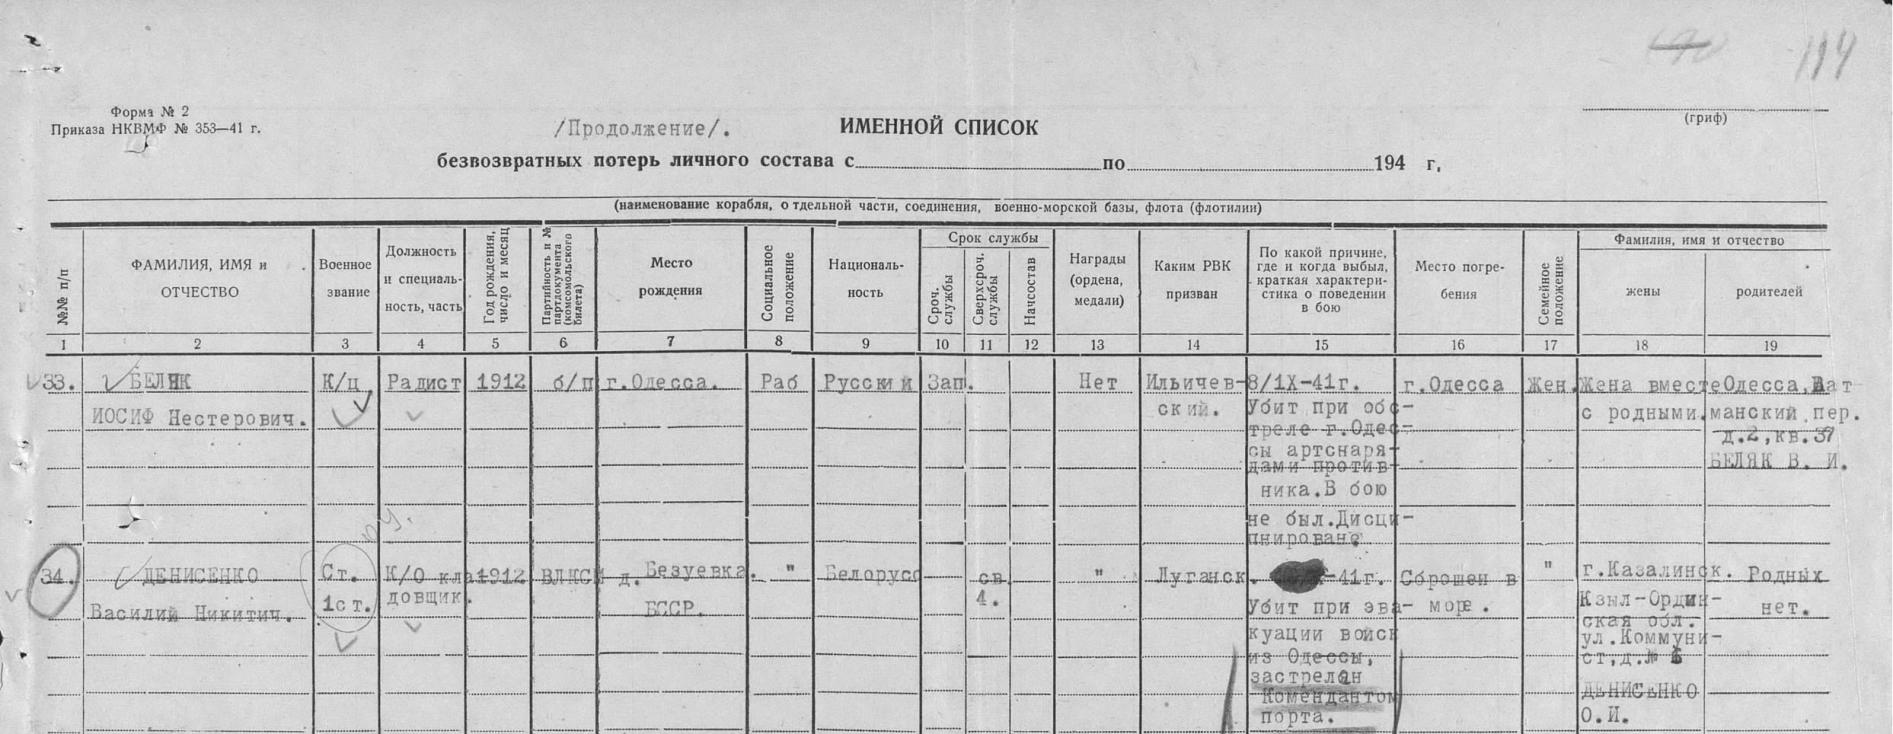 114
Форма № 2
Приказа НКВМФ № 353—41 г.
/Продолжение/. ИМЕННОЙ СПИСОК
(гриф)
безвозвратных потерь личного состава с по 194 г.
(наименование корабля, отдельной части, соединения, военно-морской базы, флота (флотилии)
№№ п/п
ФАМИЛИЯ, ИМЯ и
ОТЧЕСТВО
Военное
звание
Должность
и специаль-
ность, часть
Год рождения,
число и месяц
Партийность и №
партдокумента
(комсомольского
билета)
Место
рождения
Социальное
положение
Националь-
ность
Срок службы
Сроч.
службы
Сверхсроч.
службы
Начсостав
Награды
(ордена,
медали)
Каким РВК
призван
По какой причине,
где и когда выбыл,
краткая характери-
стика о поведении
в бою
Место погре-
бения
Семейное
положение
Фамилия, имя и отчество
жены
родителей
1 2 3 4 5 6 7 8 9 10 11 12 13 14 15 16 17 18 19
33.
БЕЛЯК
ИОСИФ Нестерович.
К/ц
Радист
1912
б/п
г.Одесса.
Раб
Русский
Зап.
Нет
Ильичев-
ский.
8/1Х-41г.
Убит при обс-
треле г.Одес-
сы артснаря-
дами против-
ника.В бою
не был.Дисци-
г.Одесса
Жен.
Жена вместе
с родными.
Одесса,
манский пер.
д.2,кв.37
БЕЛЯК В. И.
34.
ДЕНИСЕНКО
Василий Никитич.
Ст.
1ст.
К/О кла-
довщик.
1912
ВЛКСМ
д. Безуевка.
БССР.
"
Белорусс
св.
4.
"
Луганск.
-41г.
Убит при эва-
куации войск
из Одессы,
застрелян
Комендантом
порта.
Сброшен в
море.
"
г.Казалинск.
Кзыл-Ордин-
ская обл.
ул.Коммуни-
ст,д.№
ДЕНИСЕНКО
О.И.
Родных
нет.